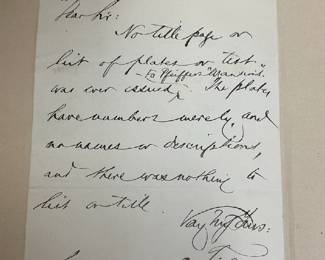 Dear Sir:
No title page or
list of plates or text
to Pfeiffer's
was ever issued. The plates
have numbers merely, and
no names or descriptions,
and there was nothing to
list or title.
Very truly yours: